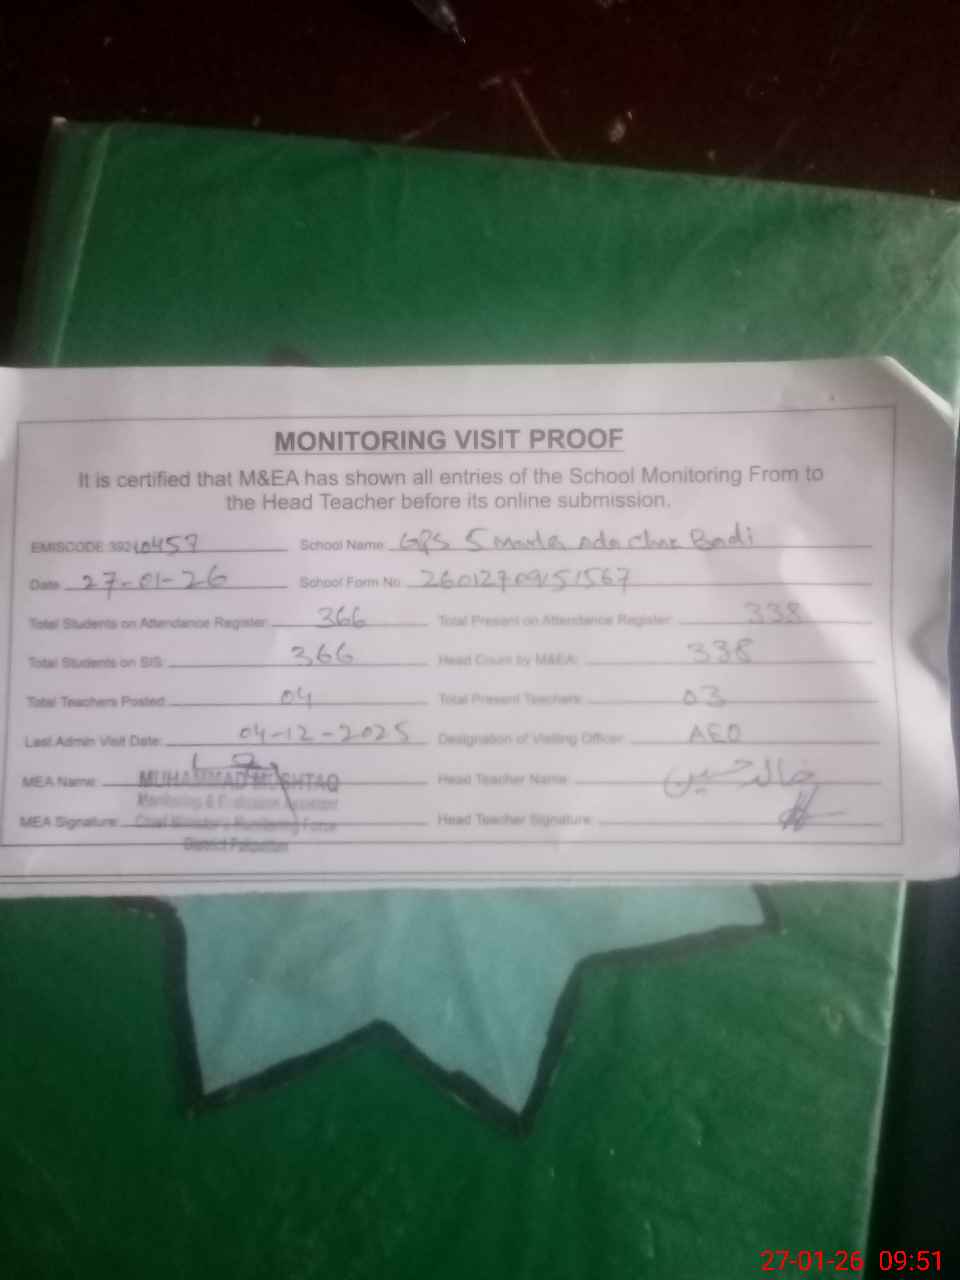 MONITORING VISIT PROOF
It is certified that M&EA has shown all entries of the School Monitoring From to
the Head Teacher before its online submission.
EMISCODE 39210457 School Name: GPS 5 marla ada Chak Bodi
Date 27-01-26 School Form No 2601270951567
Total Students on Attendance Register: 366 Total Present on Attendance Register: 338
Total Students on SIS: 366 Head Count by M&EA: 338
Total Teachers Posted 04 Total Present Teachers: 03
Last Admin Visit Date: 04-12-2025 Designation of Visiting Officer: AEO
MEA Name: MUHAMMAD MUSHTAQ Head Teacher Name: خالد حسین
Monitoring & Evaluation Assistant
MEA Signature: Chief Minister's Monitoring Force Head Teacher Signature:
District Pakpattan
27-01-26 09:51